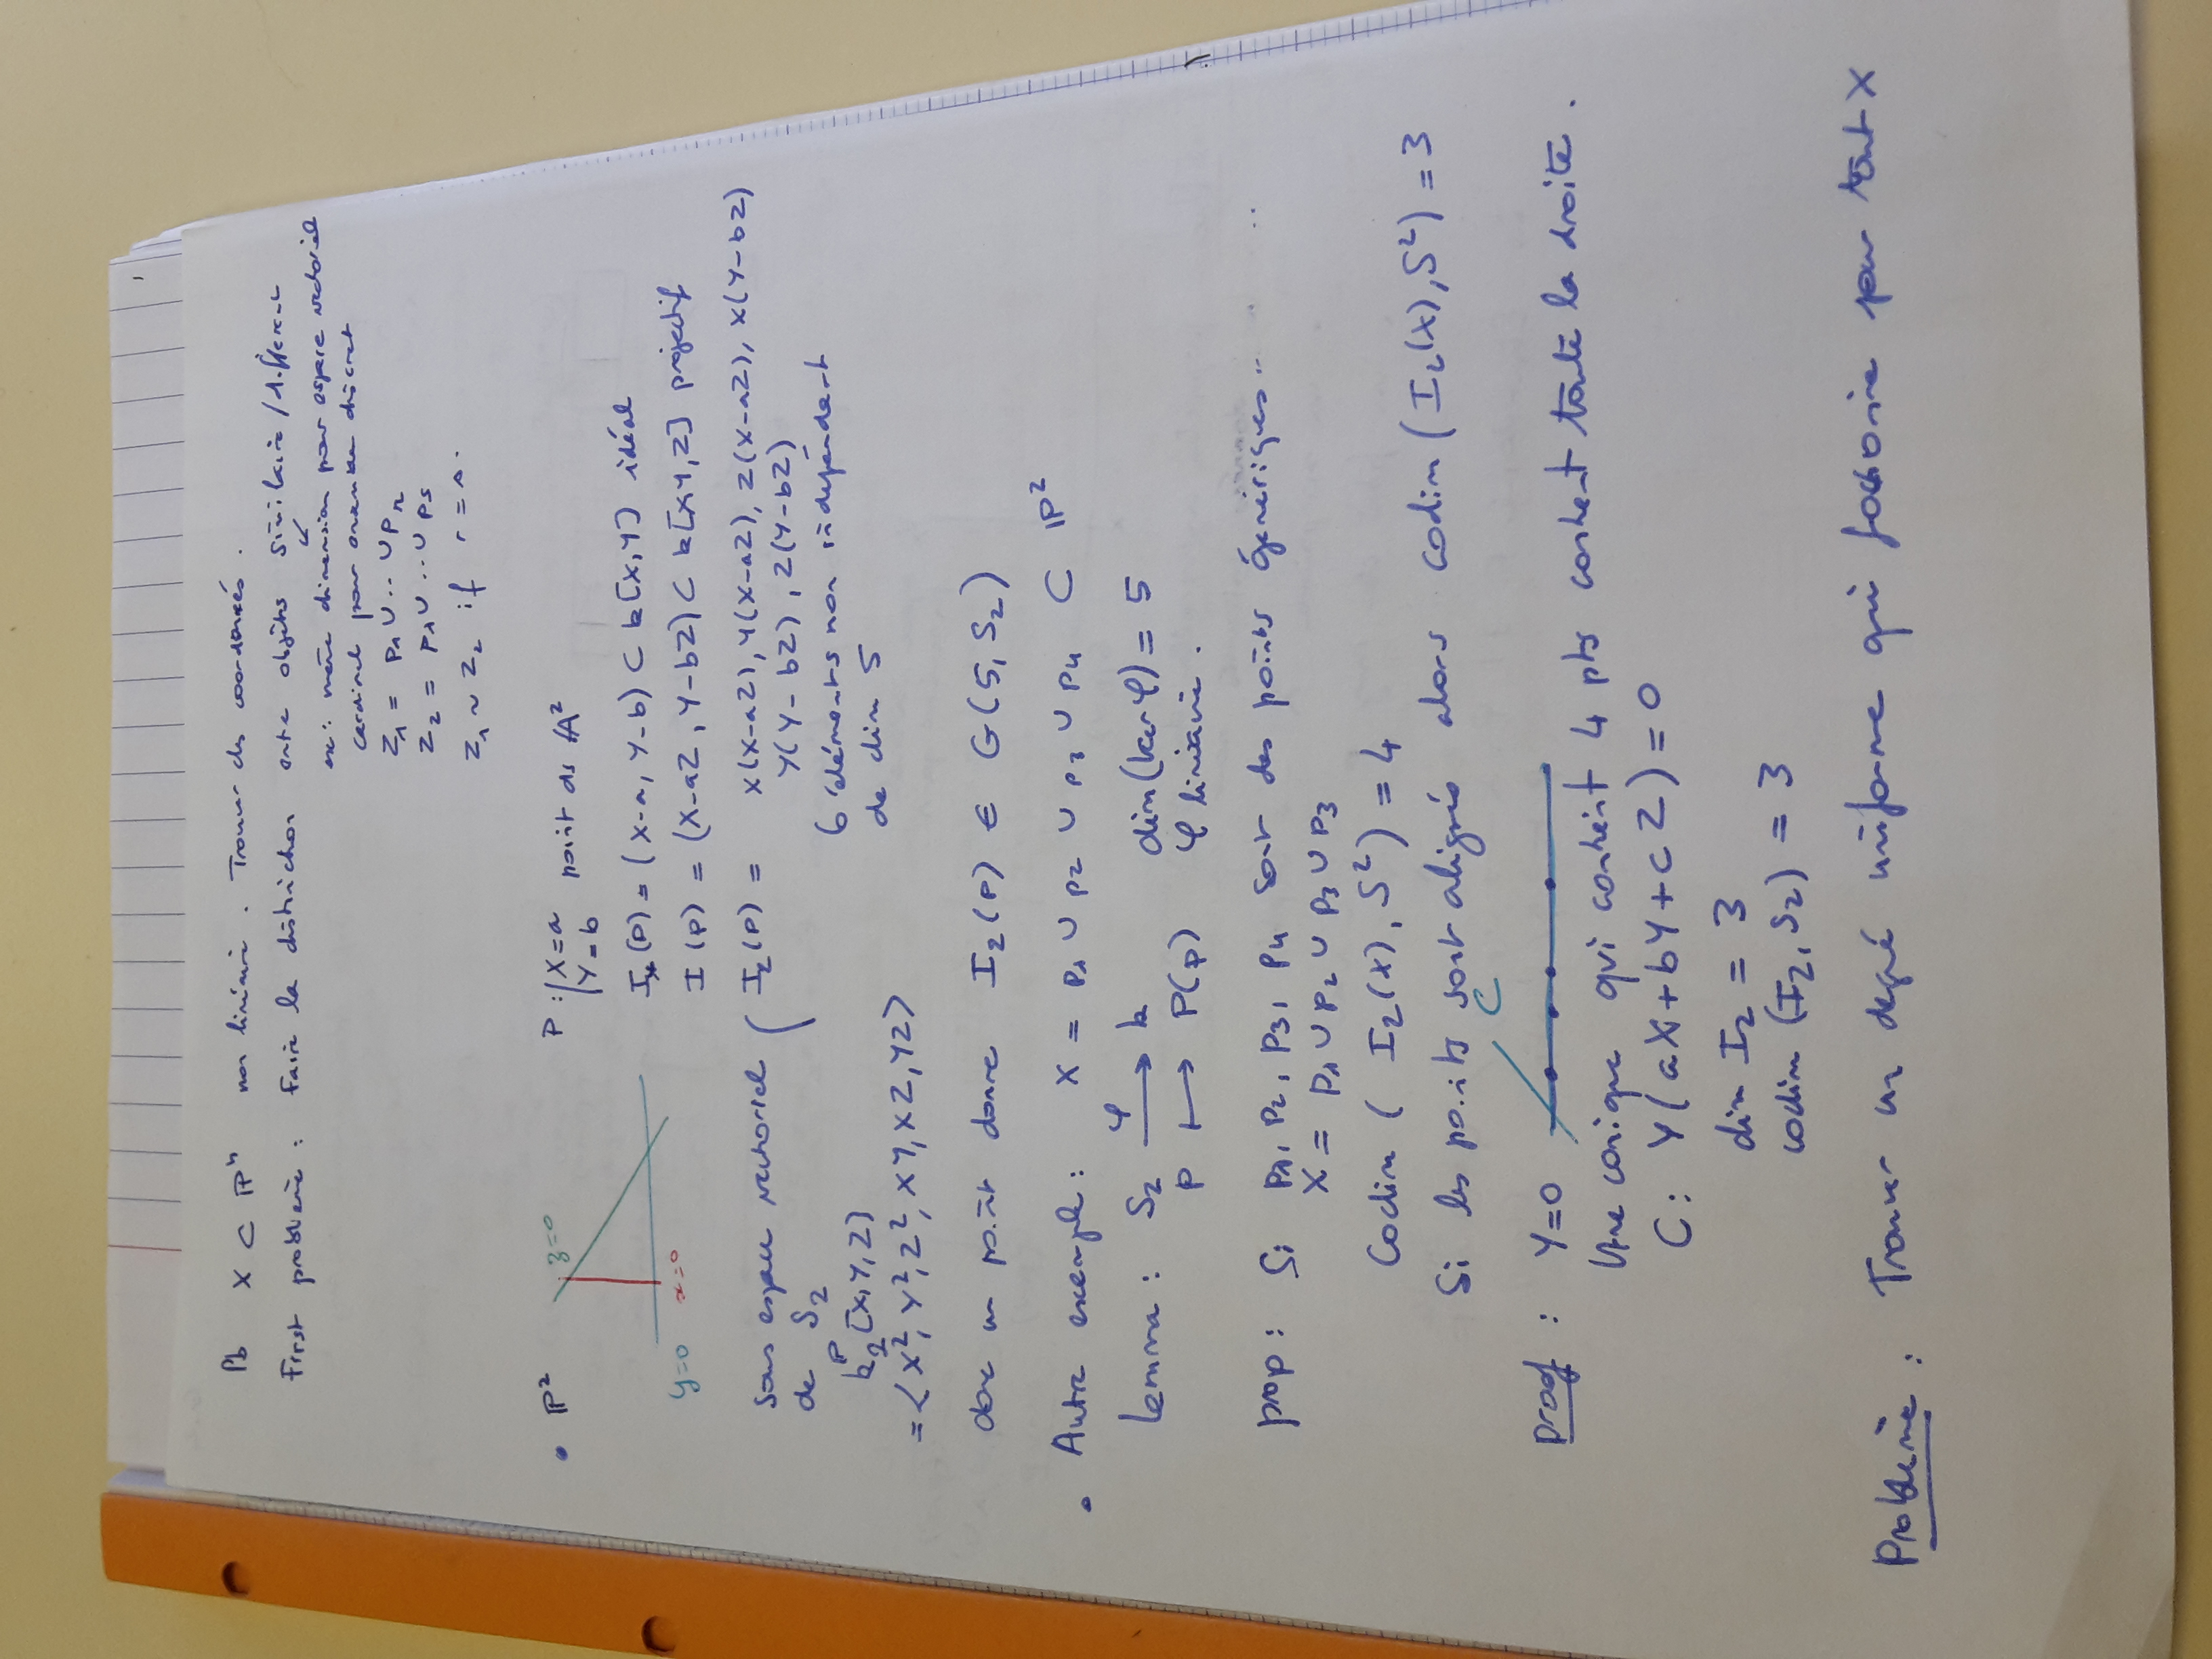 Pb X ⊂ ℙⁿ non linéaire. Trouver des coordonnées.
First problème : Faire la distinction entre objets similaire / different
ex : même dimension pour espace vectoriel
cardinal pour ensemble discret
Z₁ = p₁ ∪ .. ∪ p_r
Z₂ = p₁ ∪ .. ∪ p_s
Z₁ ~ Z₂ if r = s.
• ℙ²
z=0
y=0 x=0
P : | X=a
| Y=b point ds 𝔸²
I_*(P) = (X-a, Y-b) ⊂ k[X,Y] idéal
I(p) = (X-aZ, Y-bZ) ⊂ k[X,Y,Z] projectif
sous espace vectoriel
de S₂
I₂(P) = X(X-aZ), Y(X-aZ), Z(X-aZ), X(Y-bZ)
Y(Y-bZ), Z(Y-bZ)
6 éléments non indépendant
de dim 5
k₂[X,Y,Z]
= <X², Y², Z², XY, XZ, YZ>
donc un point donne I₂(P) ∈ G(5, S₂)
• Autre exemple : X = p₁ ∪ p₂ ∪ p₃ ∪ p₄ ⊂ ℙ²
Lemma : S₂ —φ→ k dim(ker φ) = 5
P ⟼ P(p) φ linéaire.
prop : Si p₁, p₂, p₃, p₄ sont des points génériques..
X = p₁ ∪ p₂ ∪ p₃ ∪ p₃
Codim ( I₂(X), S²) = 4
Si les points sont alignés alors codim (I₂(X), S²) = 3
C
Proof : Y=0
Une conique qui contient 4 pts contient toute la droite.
C : Y(aX+bY+cZ) = 0
dim I₂ = 3
codim (I₂, S₂) = 3
Problème : Trouver un degré uniforme qui fonctionne pour tout X